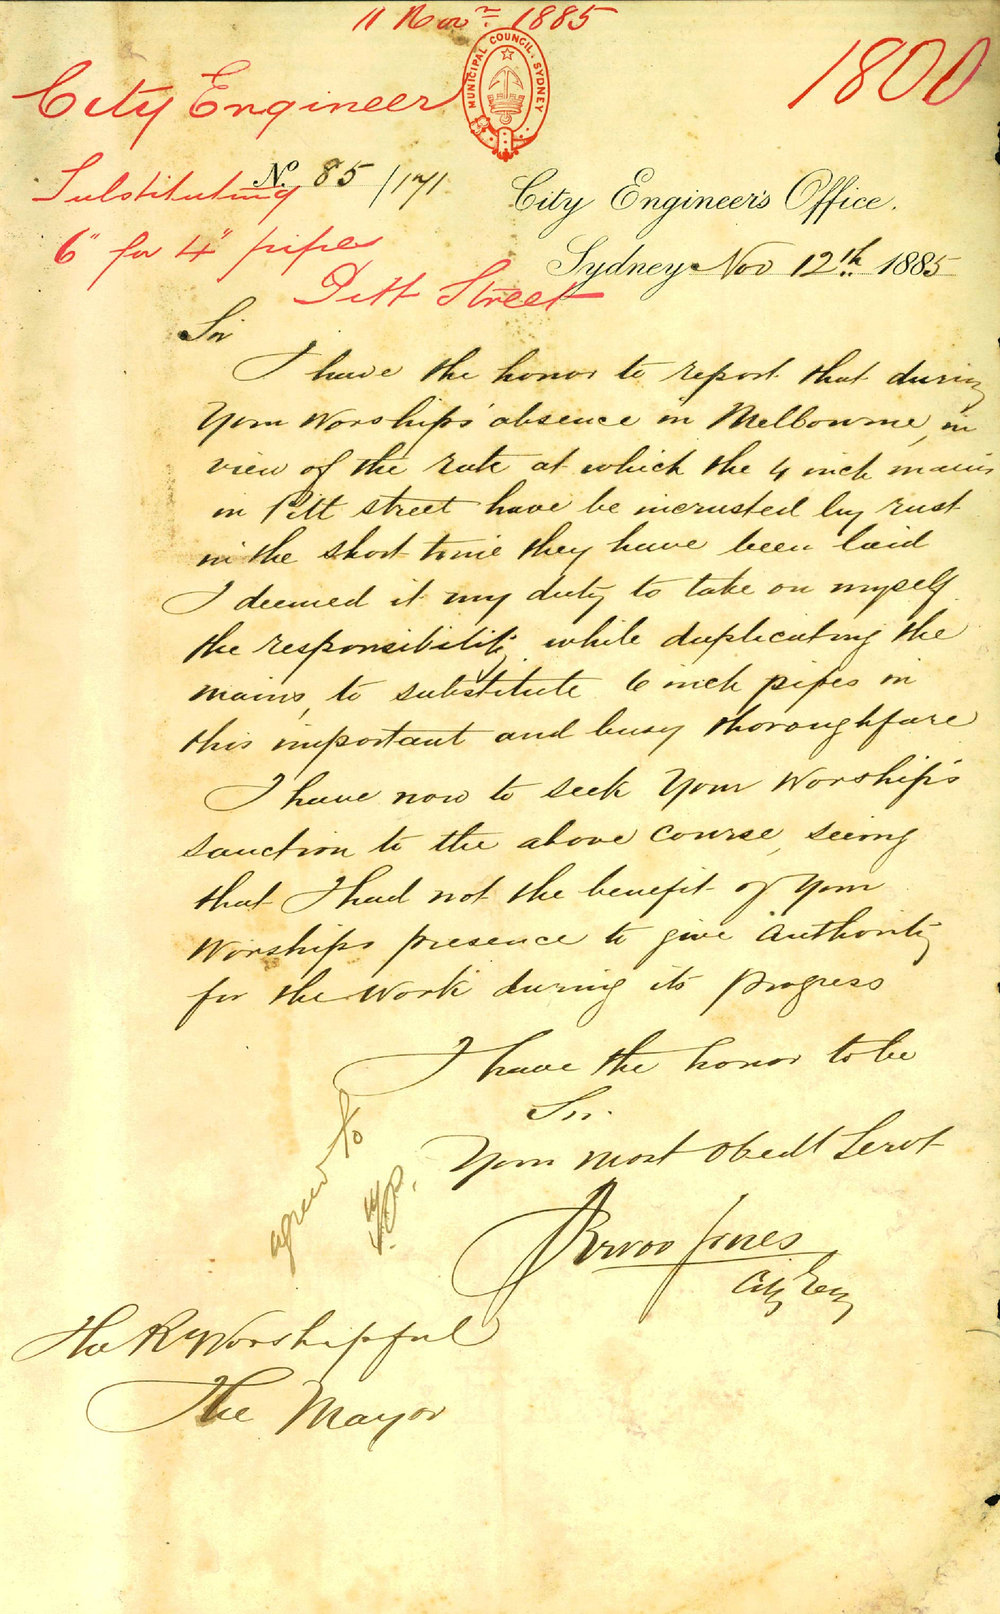 11 Novr. 1885
1800
MUNICIPAL COUNCIL. SYDNEY
City Engineer
Substituting
6" for 4" pipes
Pitt Street
No. 85/171
City Engineer's Office.
Sydney Nov 12th. 1885
Sir
I have the honor to report that during
Your Worships' absence in Melbourne, in
view of the rate at which the 4 inch mains
in Pitt street have be incrusted by rust
in the short time they have been laid
I deemed it my duty to take on myself
the responsibility, while duplicating the
mains, to substitute 6 inch pipes in
this important and busy thoroughfare
I have now to seek Your Worship's
sanction to the above course, seeing
that I had not the benefit of Your
Worships presence to give authority
for the Work during its progress
I have the honor to be
Sir.
Your most obedt Servt
Jones
City Eng
agreed to
The Rt Worshipful
The Mayor